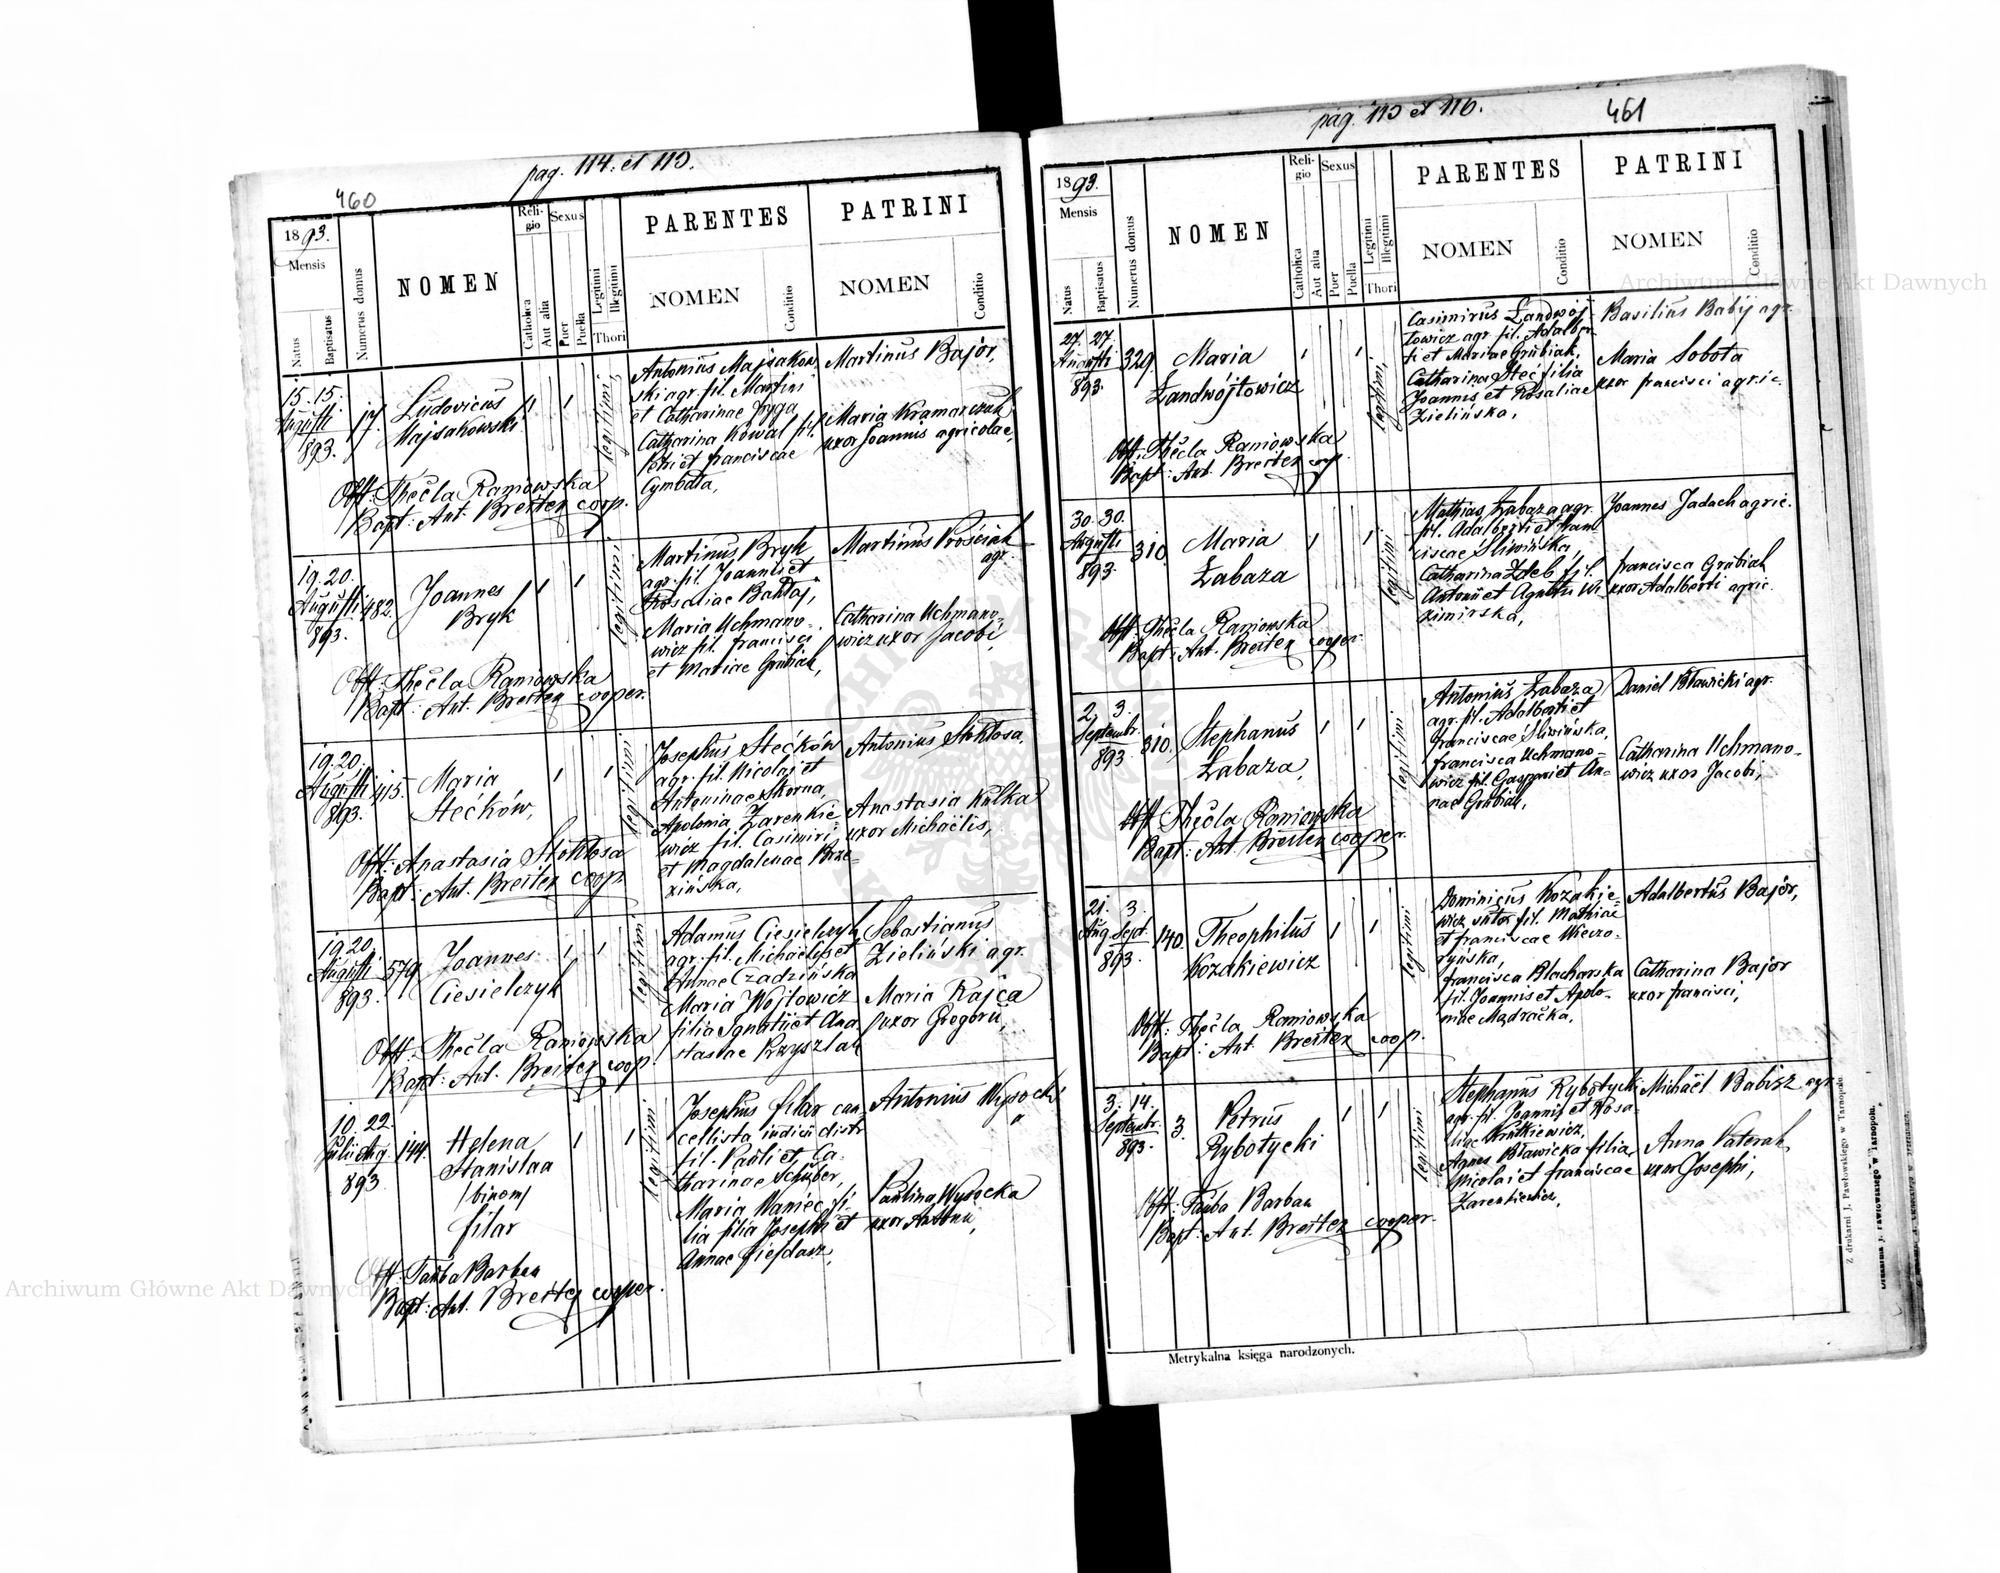 pag. 114. et 115.
460
1893.
Mensis
Natus
Baptisatus
Numerus domus
NOMEN
Reli-
gio
Catholica
Aut alia
Sexus
Puer
Puella
Legitimi
Illegitimi
Thori
PARENTES
NOMEN
Conditio
PATRINI
NOMEN
Conditio
15. 15.
Augusti
893.
17.
Ludovicus
Majsakowski
legitimi
Antonius Majsakow
ski agr. fil. Martini
et Catharinae Fryga
Catharina Kowal fil.
Petri et Franciscae
Cymbała,
Martinus Bajor,
Maria Kramarczuk
uxor Joannis agricolae,
Obst: Thecla Raniowska
Bapt: Ant. Breiter coop.
19. 20.
Augusti
893.
482.
Joannes
Bryk
legitimi
Martinus Bryk
agr. fil. Joannis et
Rosaliae Bahłaj,
Maria Uchmano-
wicz fil. Francisci
et Mariae Grubiak,
Martinus Prościak
agr.
Catharina Uchmano-
wicz uxor Jacobi,
Obst: Thecla Raniowska
Bapt: Ant. Breiter cooper.
19. 20.
Augusti
893.
415.
Maria
Stećków,
legitimi
Josephus Stećków
agr. fil. Nicolai et
Antoninae Skorna,
Apolonia Zarenkie
wicz fil. Casimiri
et Magdalenae Brze-
zińska,
Antonius Stokłosa,
Anastasia Kulka
uxor Michaëlis,
Obst: Anastasia Stokłosa
Bapt: Ant. Breiter coop.
19. 20.
Augusti
893.
579.
Joannes
Ciesielczyk
legitimi
Adamus Ciesielczyk
agr. fil. Michaëlis et
Annae Czadzińska
Maria Wojtowicz
filia Ignatii et Ana
stasiae Przyszlak
Sebastianus
Zieliński agr.
Maria Kajca
uxor Gregorii,
Obst: Thecla Raniowska
Bapt: Ant. Breiter coop.
10. 22.
Julii Aug.
893
144.
Helena
Stanislaa
/binom/
Filar
legitimi
Josephus Filar can
cellista iudicii distr
fil. Pauli et Ca-
tharinae Schuber,
Maria Waniec fi
lia filia Josephi et
Annae
Antonius Wysocki
Paulina Wysocka
uxor Antonii,
Obst: Tauba Barban
Bapt: Ant. Breiter cooper.
pag. 115 et 116.
461
1893.
Mensis
Natus
Baptisatus
Numerus domus
NOMEN
Reli-
gio
Catholica
Aut alia
Sexus
Puer
Puella
Legitimi
Illegitimi
Thori
PARENTES
NOMEN
Conditio
PATRINI
NOMEN
Conditio
27. 27.
Augusti
893.
329.
Maria
Landwójtowicz
legitimi,
Casimirus Landwój-
towicz agr. fil. Adalber
ti et Mariae Grubiak,
Catharina Steć filia
Joannis et Rosaliae
Zielińska,
Basilius Babij agr.
Maria Sobota
uxor Francisci agric.
Obst: Thecla Raniowska
Bapt: Ant. Breiter coop.
30. 30.
Augusti
893
310.
Maria
Łabaza
legitimi
Mathias Łabaza agr.
fil. Adalberti et Fran
ciscae Śliwińska,
Catharina Zdeb fil.
Antonii et Agnetis Wi
zimirska,
Joannes Jadach agric.
Francisca Grubiak
uxor Adalberti agric.
Obst: Thecla Raniowska
Bapt: Ant. Breiter cooper.
2. 3.
Septembr.
893
310.
Stephanus
Łabaza,
legitimi
Antonius Łabaza
agr. fil. Adalberti et
Franciscae Śliwińska,
Francisca Uchmano-
wicz fil. Gaspari et An-
nae Grubiak,
Daniel Bławicki agr.
Catharina Uchmano-
wicz uxor Jacobi,
Obst: Thecla Raniowska
Bapt: Ant. Breiter cooper.
21. 3.
Aug. Sept.
893
140.
Theophilus
Kozakiewicz
legitimi
Dominicus Kozakie-
wicz sutor fil. Mathiae
et Franciscae Wieczo-
ryńska,
Francisca Blacharska
fil. Joannis et Apolo-
niae Mądraćka,
Adalbertus Bajor,
Catharina Bajor
uxor Francisci,
Obst: Thecla Raniowska
Bapt: Ant. Breiter coop.
3. 14.
Septembr.
893.
3.
Petrus
Rybotycki
legitimi
Stephanus Rybotycki
agr. fil. Joannis et Rosa-
liae Krutkiewicz,
Agnes Bławicka filia
Nicolai et Franciscae
Zarenkiewicz,
Michaël Babisz agr.
Anna Paterak
uxor Josephi,
Obst: Tauba Barban
Bapt: Ant. Breiter cooper.
Metrykalna księga narodzonych.
Z drukarni J. Pawłowskiego w Tarnopolu.
Archiwum Główne Akt Dawnych
Archiwum Główne Akt Dawnych